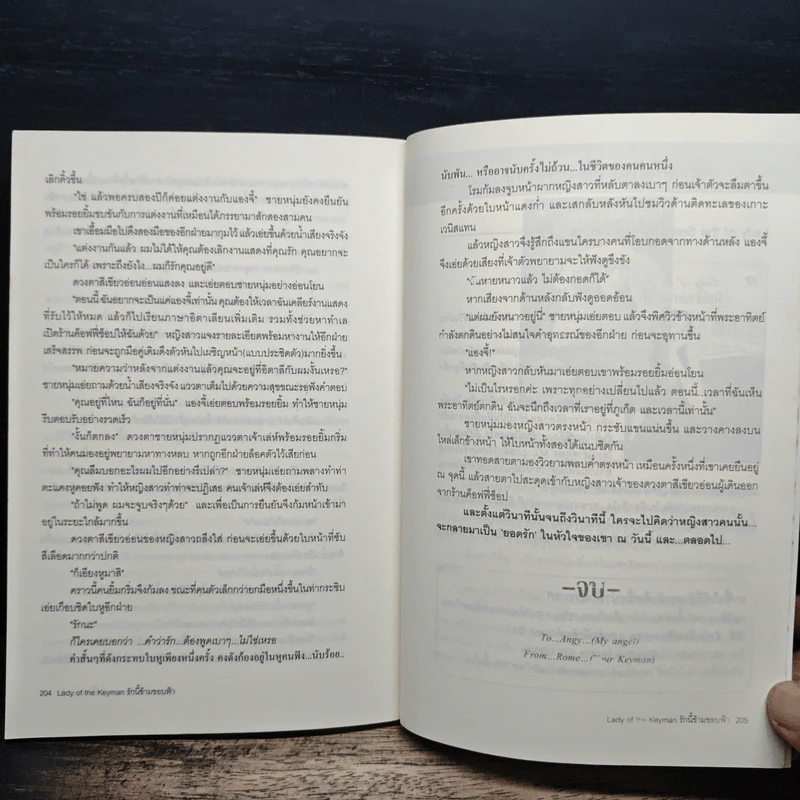 เลิกคิ้วขึ้น
"ใช่ แล้วพอครบสองปีก็ค่อยแต่งงานกับแองจี้" ชายหนุ่มยังคงยืนยัน
พร้อมรอยยิ้มขบขันกับการแต่งงานที่เหมือนได้ภรรยามาสักสองสามคน
เขาเอื้อมมือไปดึงสองมือของอีกฝ่ายมากุมไว้ แล้วเอ่ยขึ้นด้วยน้ำเสียงจริงจัง
"แต่งงานกันแล้ว ผมไม่ได้ให้คุณต้องเลิกงานแสดงที่คุณรัก คุณอยากจะ
เป็นใครก็ได้ เพราะถึงยังไง...ผมก็รักคุณอยู่ดี"
ดวงตาสีเขียวอ่อนอ่อนแสงลง และเอ่ยตอบชายหนุ่มอย่างอ่อนโยน
"ตอนนี้ ฉันอยากจะเป็นแค่แองจี้เท่านั้น คุณต้องให้เวลาฉันเคลียร์งานแสดง
ที่รับไว้ให้หมด แล้วก็ไปเรียนภาษาอิตาเลียนเพิ่มเติม รวมทั้งช่วยหาทำเล
เปิดร้านค็อฟฟี่ช็อปให้ฉันด้วย" หญิงสาวแจงรายละเอียดพร้อมหางานให้อีกฝ่าย
เสร็จสรรพ ก่อนจะถูกมือคู่เดิมดึงตัวหันไปเผชิญหน้า(แบบประชิดตัว)มากยิ่งขึ้น
"หมายความว่าหลังจากแต่งงานแล้วคุณจะอยู่ที่อิตาลีกับผมงั้นเหรอ?"
ชายหนุ่มเอ่ยถามด้วยน้ำเสียงจริงจัง แววตาเต็มไปด้วยความสุขขณะรอฟังคำตอบ
"คุณอยู่ที่ไหน ฉันก็อยู่ที่นั่น" แองจี้เอ่ยตอบพร้อมรอยยิ้ม ทำให้ชายหนุ่ม
รีบตอบรับอย่างรวดเร็ว
"งั้นก็ตกลง" ดวงตาชายหนุ่มปรากฏแววตาเจ้าเล่ห์พร้อมรอยยิ้มกริ่ม
ที่ทำให้คนมองอยู่พยายามหาทางหลบ หากถูกอีกฝ่ายล็อคตัวไว้เสียก่อน
"คุณลืมบอกอะไรผมไปอีกอย่างรึเปล่า?" ชายหนุ่มเอ่ยถามพลางทำท่า
ตะแคงหูคอยฟัง ทำให้หญิงสาวทำท่าจะปฏิเสธ คนเจ้าเล่ห์จึงต้องเอ่ยสำทับ
"ถ้าไม่พูด ผมจะจูบจริงๆด้วย" และเพื่อเป็นการยืนยันจึงก้มหน้าเข้ามา
อยู่ในระยะใกล้มากขึ้น
ดวงตาสีเขียวอ่อนของหญิงสาวถลึงใส่ ก่อนจะเอ่ยขึ้นด้วยใบหน้าที่ซับ
สีเลือดมากกว่าปกติ
"ก็เอียงหูมาสิ"
คราวนี้คนยิ้มกริ่มจึงก้มลง ขณะที่คนตัวเล็กกว่ายกมือหนึ่งขึ้นในท่ากระซิบ
เอ่ยเกือบชิดใบหูอีกฝ่าย
"รักนะ"
ก็ใครเคยบอกว่า ...คำว่ารัก...ต้องพูดเบาๆ...ไม่ใช่เหรอ
คำสั้นๆที่ดังกระทบใบหูเพียงหนึ่งครั้ง คงดังก้องอยู่ในหูคนฟัง...นับร้อย..
204 Lady of the Keyman รักนี้ข้ามขอบฟ้า
นับพัน... หรืออาจนับครั้งไม่ถ้วน...ในชีวิตของคนคนหนึ่ง
โรมก้มลงจูบหน้าผากหญิงสาวที่หลับตาลงเบาๆ ก่อนเจ้าตัวจะลืมตาขึ้น
อีกครั้งด้วยใบหน้าแดงก่ำ และเสกลับหลังหันไปชมวิวด้านติดทะเลของเกาะ
เวนิสแทน
แล้วหญิงสาวจึงรู้สึกถึงแขนใครบางคนที่โอบกอดจากทางด้านหลัง แองจี้
จึงเอ่ยด้วยเสียงที่เจ้าตัวพยายามจะให้ฟังดูขึงขัง
"ฉันหายหนาวแล้ว ไม่ต้องกอดก็ได้"
หากเสียงจากด้านหลังกลับฟังดูออดอ้อน
"แต่ผมยังหนาวอยู่นี่" ชายหนุ่มเอ่ยตอบ แล้วจึงพิศวิวข้างหน้าที่พระอาทิตย์
กำลังตกดินอย่างไม่สนใจคำอุทธรณ์ของอีกฝ่าย ก่อนจะอุทานขึ้น
"แองจี้!"
หากหญิงสาวกลับหันมาเอ่ยตอบเขาพร้อมรอยยิ้มอ่อนโยน
"ไม่เป็นไรหรอกค่ะ เพราะทุกอย่างเปลี่ยนไปแล้ว ตอนนี้..เวลาที่ฉันเห็น
พระอาทิตย์ตกดิน ฉันจะนึกถึงเวลาที่เราอยู่ที่ภูเก็ต และเวลานี้เท่านั้น"
ชายหนุ่มมองหญิงสาวตรงหน้า กระชับแขนแน่นขึ้น และวางคางลงบน
ไหล่เล็กข้างหน้า ให้ใบหน้าทั้งสองได้แนบชิดกัน
เขาทอดสายตามองวิวยามพลบค่ำตรงหน้า เหมือนครั้งหนึ่งที่เขาเคยยืนอยู่
ณ จุดนี้ แล้วสายตาไปสะดุดเข้ากับหญิงสาวเจ้าของดวงตาสีเขียวอ่อนผู้เดินออก
จากร้านค็อฟฟี่ช็อป
และตั้งแต่วินาทีนั้นจนถึงวินาทีนี้ ใครจะไปคิดว่าหญิงสาวคนนั้น...
จะกลายมาเป็น 'ยอดรัก' ในหัวใจของเขา ณ วันนี้ และ...ตลอดไป...
-จบ-
To...Angy...(My angel)
From...Rome...(Your Keyman)
Lady of the Keyman รักนี้ข้ามขอบฟ้า 205